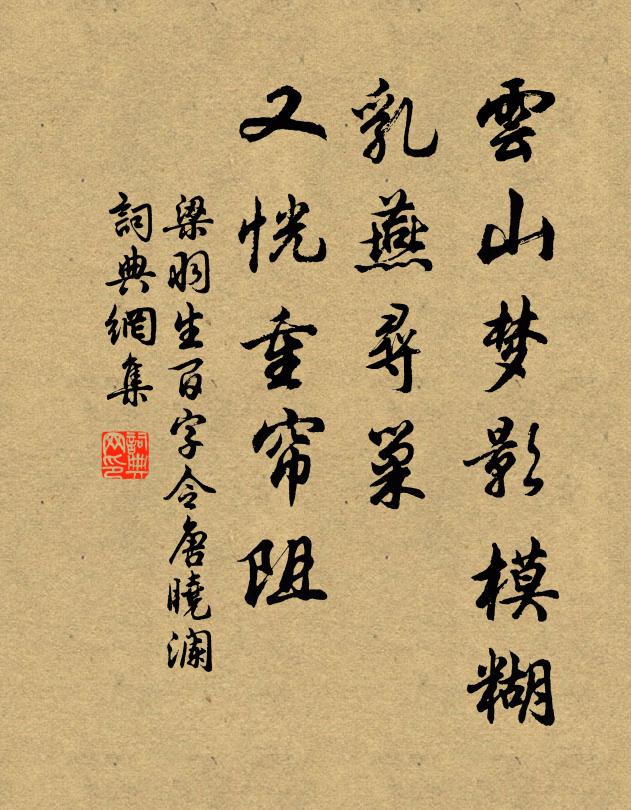 雲山梦影模糊
乳燕尋巢
又恍重帘阻
梁羽生百字令唐曉瀾
詞典網集
詞典網印